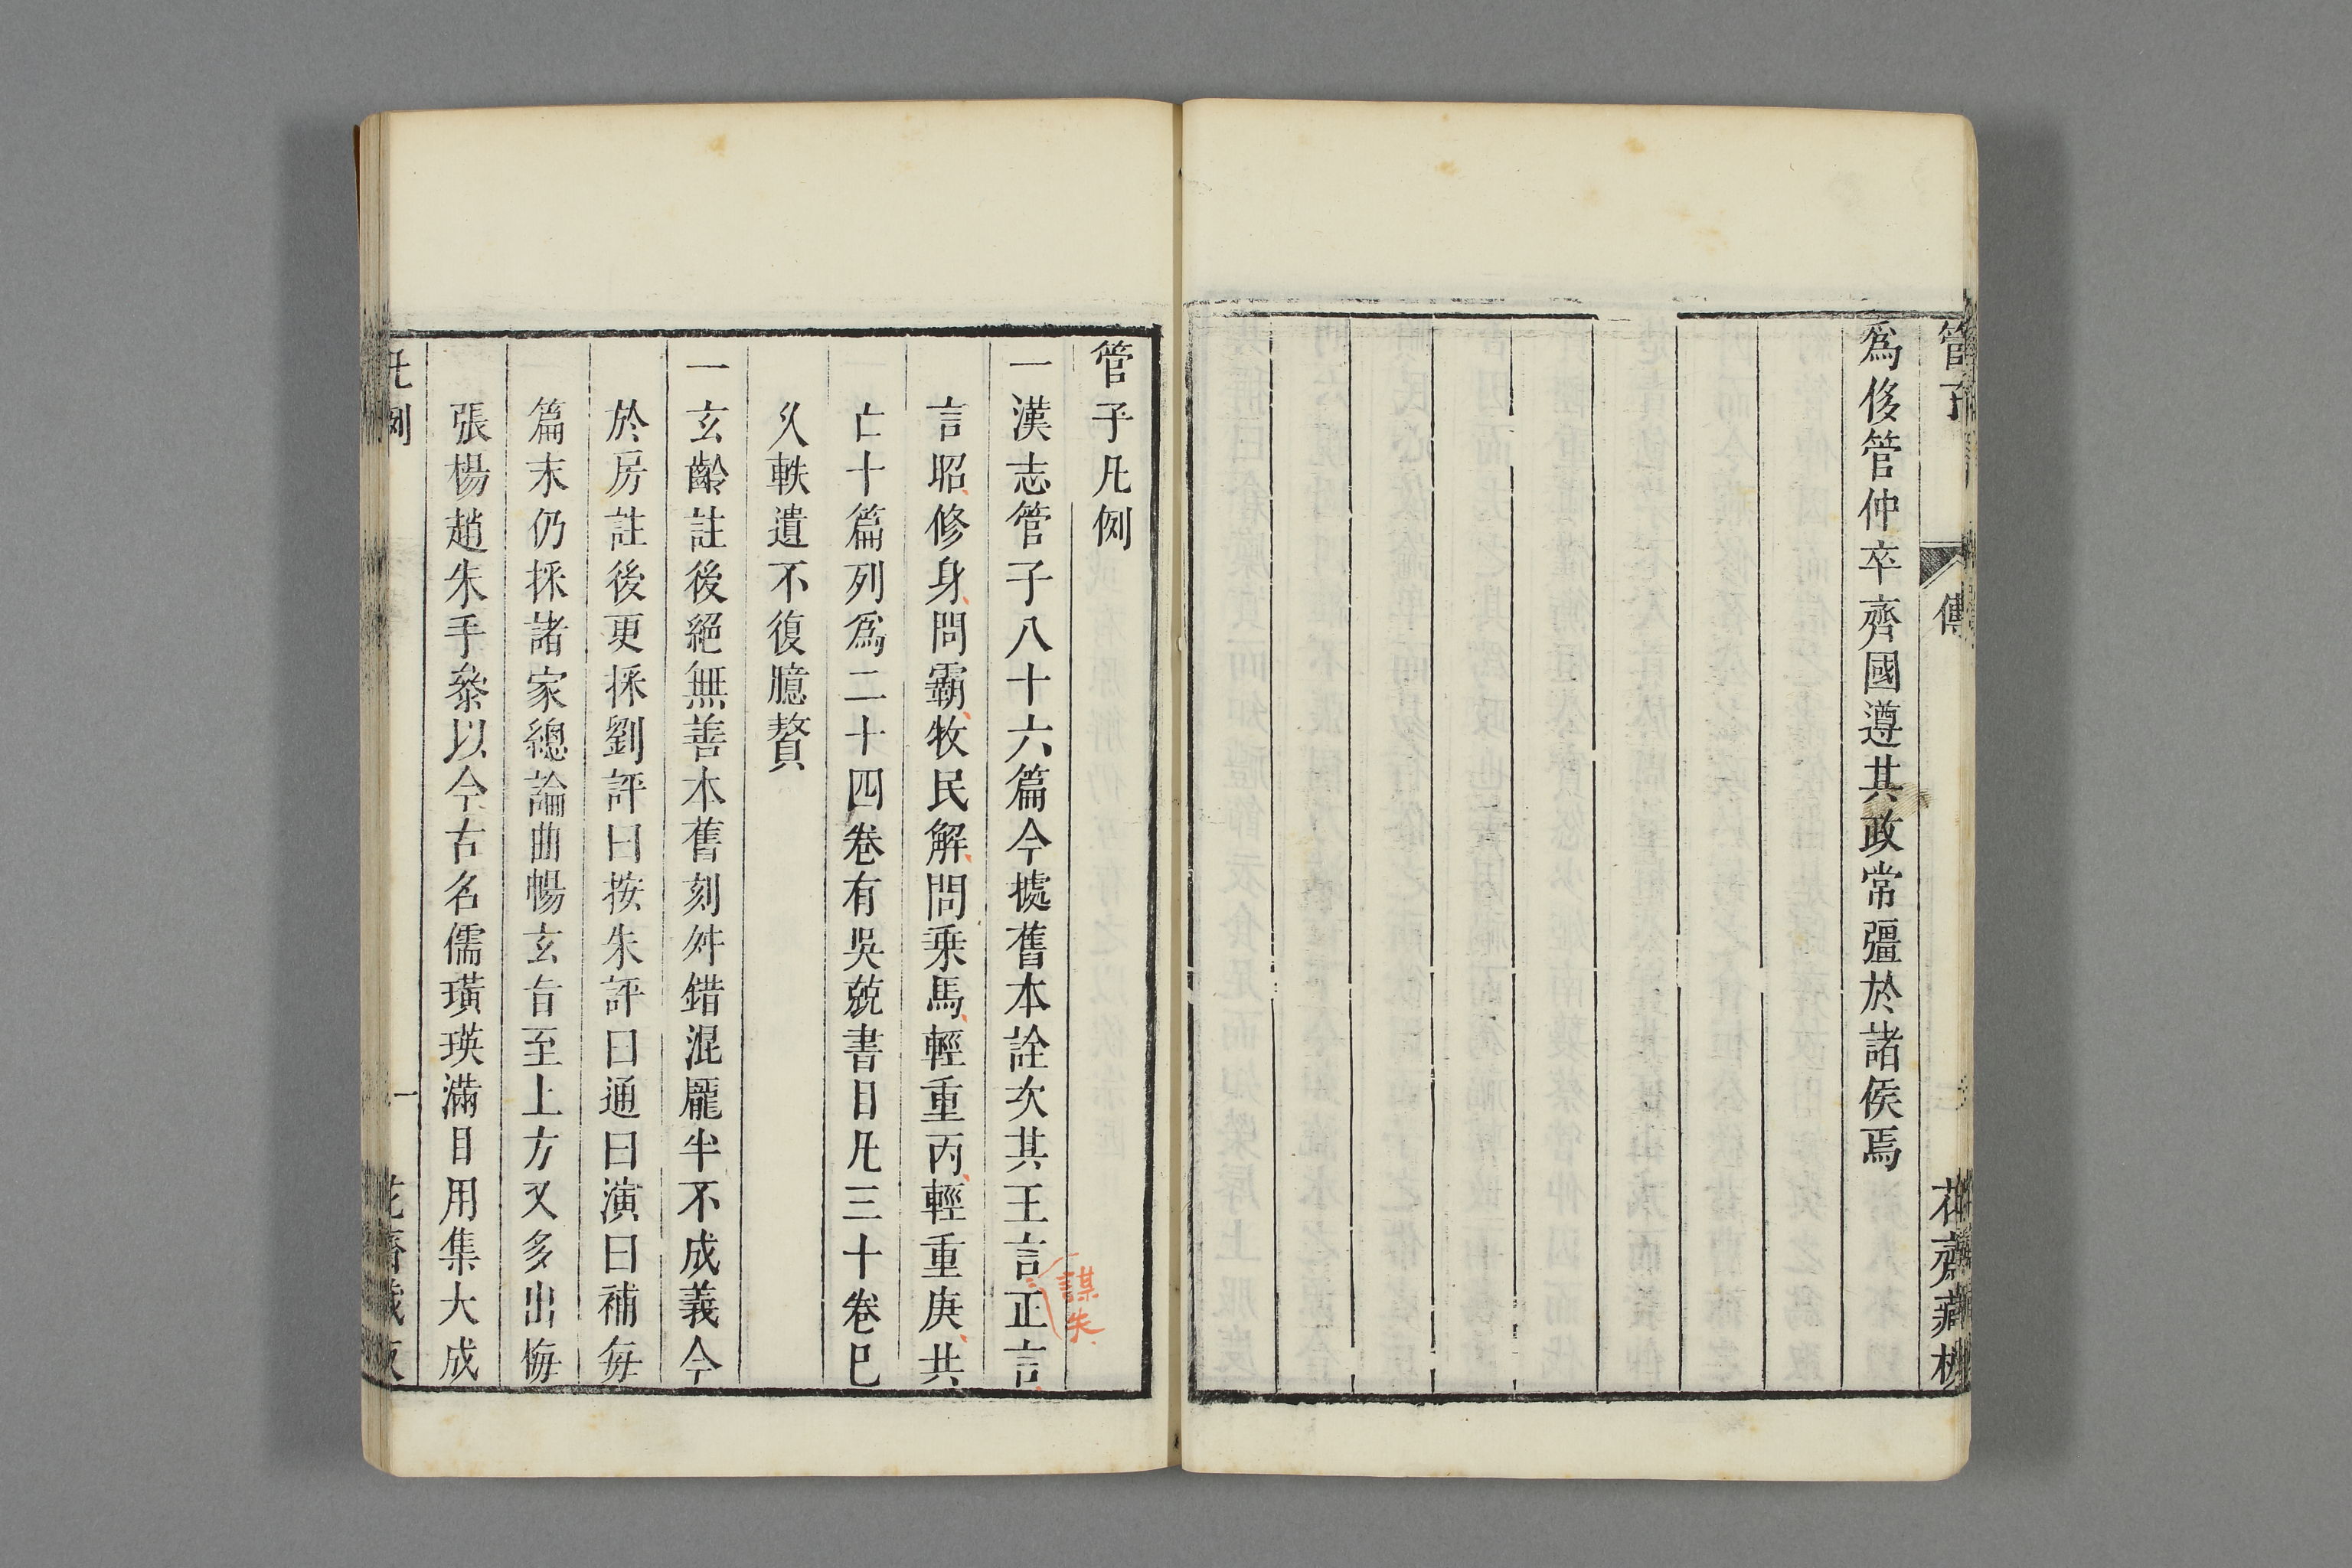 管子
傳
花齋藏板
爲侈管仲卒齊國遵其政常彊於諸侯焉
管子凡例
一漢志管子八十六篇今據舊本詮次其王言正言
謀失
言昭修身問霸牧民解問乗馬輕重丙輕重庚共
亡十篇列爲二十四卷有吳兢書目凡三十卷已
久軼遺不復臆贅
一玄齡註後絕無善本舊刻舛錯混龎半不成義今
於房註後更採劉評曰按朱評曰通曰演曰補每
篇末仍採諸家總論曲暢玄旨至上方又多出悔
張楊趙朱手叅以今古名儒璜瑛滿目用集大成
凡例
一
花齋藏板